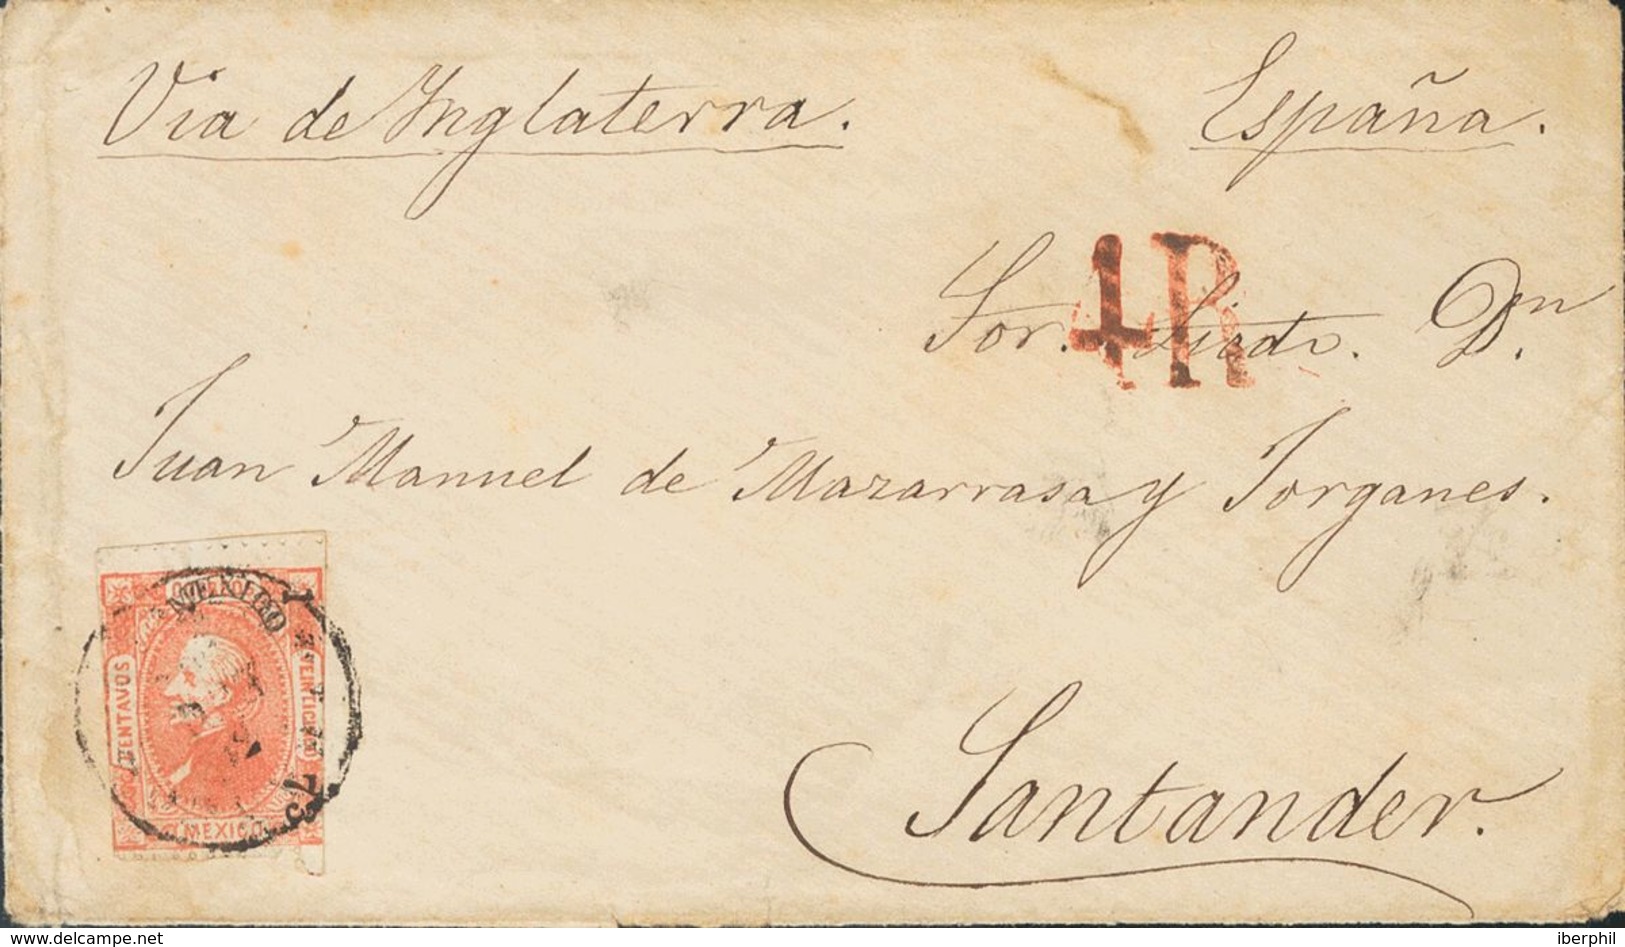 Via de Inglaterra. España.
4R
Sor. Licdo. Dn
Juan Manuel de Mazarrasa y Jorganes.
Santander.
CORREOS
MEXICO
CENTAVOS
VEINTICINCO
73
MEXICO
www.delcampe.net
iberphil